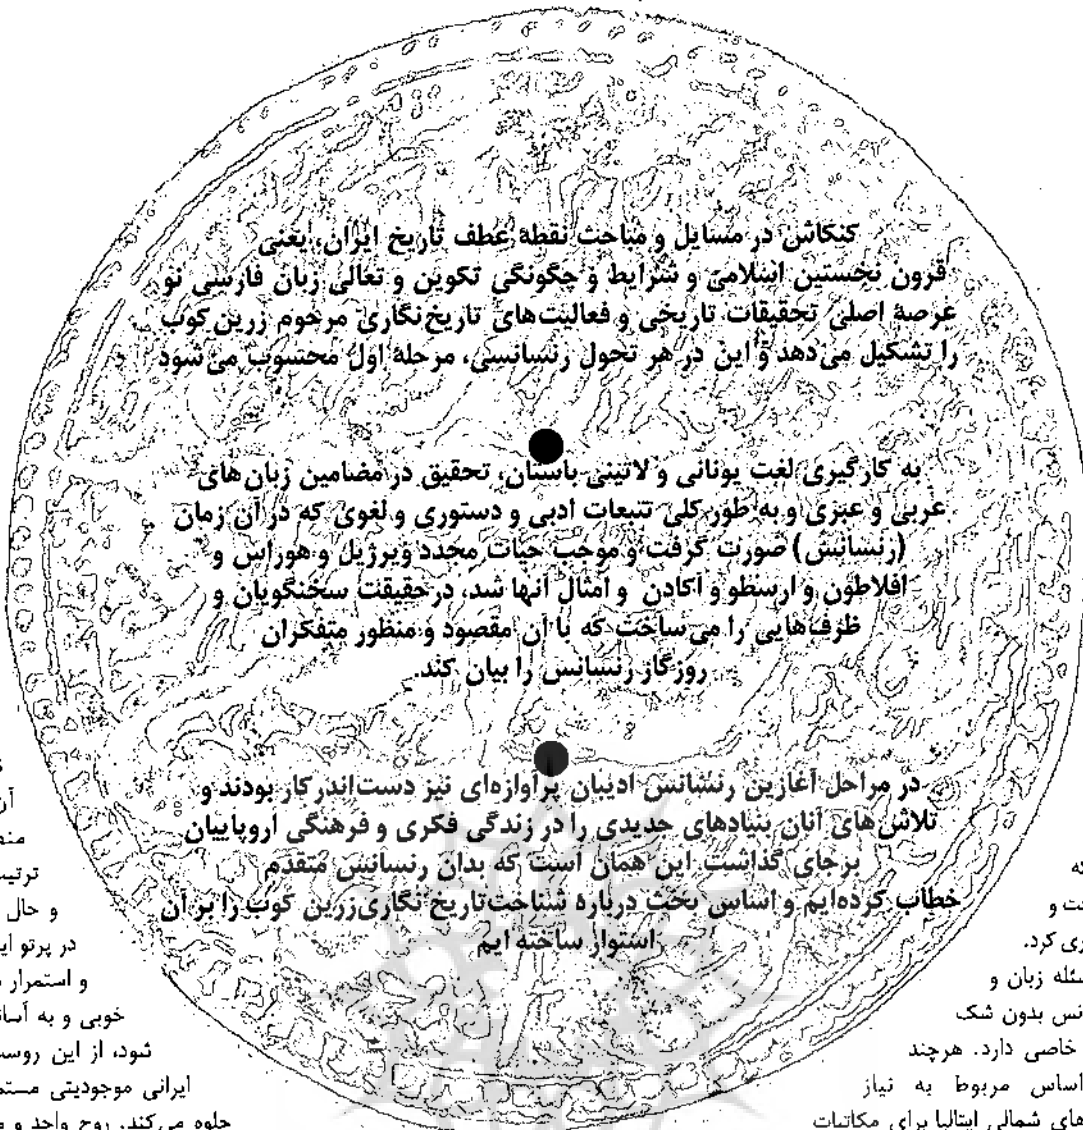 کنکاش در مسایل و مباحث نقطهٔ عطف تاریخ ایران، یعنی
قرون نخستین اسلامی و شرایط و چگونگی تکوین و تعالی زبان فارسی نو
عرصهٔ اصلی تحقیقات تاریخی و فعالیت‌های تاریخ‌نگاری مرحوم زرین‌کوب
را تشکیل می‌دهد و این در هر تحول رنسانسی، مرحلهٔ اول محسوب می‌شود
به کارگیری لغت یونانی و لاتینی باستان، تحقیق در مضامین زبان‌های
عربی و عبری و به طور کلی تتبعات ادبی و دستوری و لغوی که در آن زمان
(رنسانس) صورت گرفت و موجب حیات مجدد ویرژیل و هوراس و
افلاطون و ارسطو و آکادن و امثال آنها شد، در حقیقت سخنگویان و
ظرف‌هایی را می‌ساخت که با آن مقصود و منظور متفکران
روزگار رنسانس را بیان کند.
در مراحل آغازین رنسانس ادیبان پرآوازه‌ای نیز دست‌اندرکار بودند و
تلاش‌های آنان بنیادهای جدیدی را در زندگی فکری و فرهنگی اروپاییان
برجای گذاشت. این همان است که بدان رنسانس متقدم
خطاب کرده‌ایم و اساس بحث دربارهٔ شناخت تاریخ نگاری زرین کوب را بر آن
استوار ساخته ایم
ری کرد.
سئله زبان و
انس بدون شک
خاصی دارد. هرچند
اساس مربوط به نیاز
های شمالی ایتالیا برای مکاتبات
ترتیب
و حال
در پرتو این
و استمرار
خوبی و به آسا
شود، از این روست
ایرانی موجودیتی مستم
جلوه می‌کند. روح واحد و م